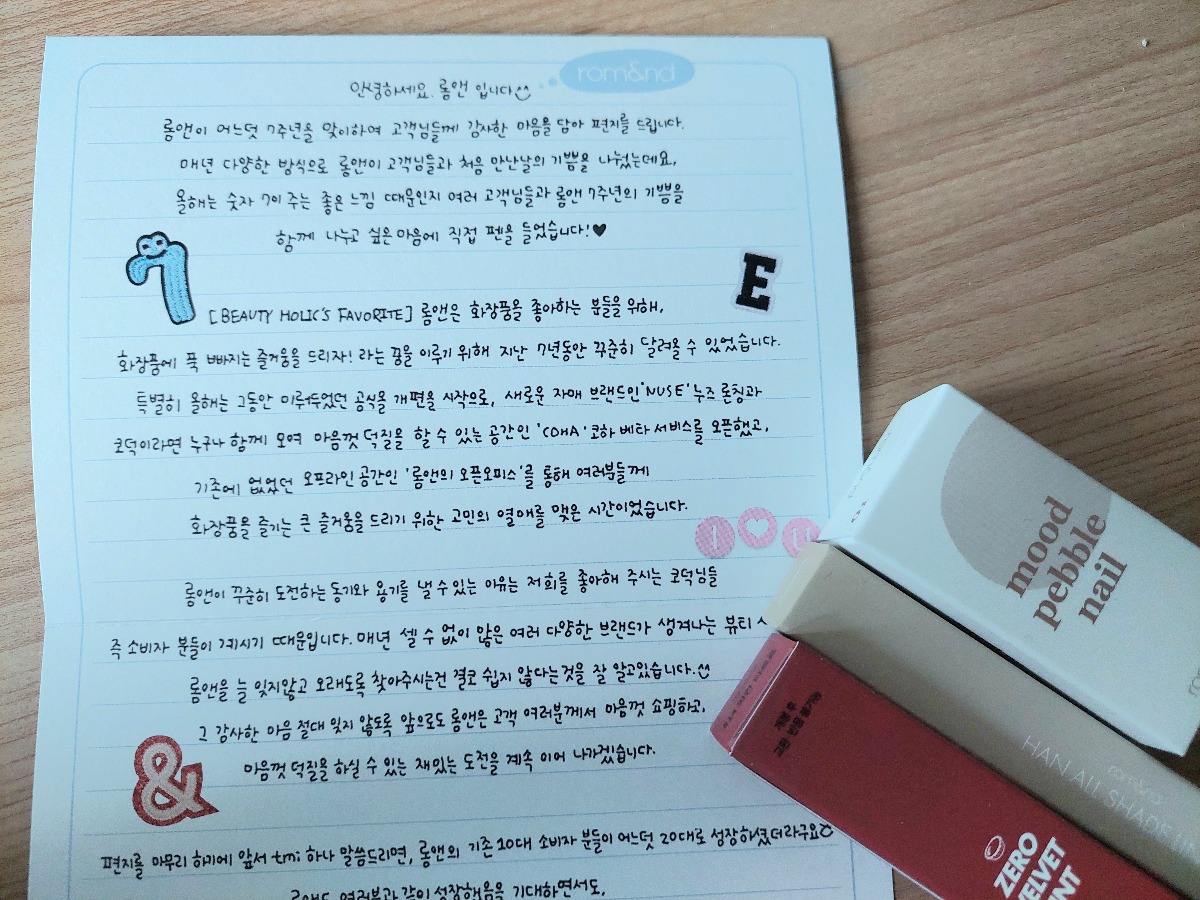 rom&nd
안녕하세요. 롬앤 입니다
롬앤이 어느덧 7주년을 맞이하여 고객님들께 감사한 마음을 담아 편지를 드립니다.
매년 다양한 방식으로 롬앤이 고객님들과 처음 만난날의 기쁨을 나눴는데요,
올해는 숫자 7이 주는 좋은 느낌 때문인지 여러 고객님들과 롬앤 7주년의 기쁨을
함께 나누고 싶은 마음에 직접 펜을 들었습니다!♥
7
E
[BEAUTY HOLIC'S FAVORITE] 롬앤은 화장품을 좋아하는 분들을 위해,
화장품에 푹 빠지는 즐거움을 드리자! 라는 꿈을 이루기 위해 지난 7년동안 꾸준히 달려올 수 있었습니다.
특별히 올해는 그동안 미루두었던 공식몰 개편을 시작으로, 새로운 자매 브랜드인 'NUSE' 누즈 론칭과
코덕이라면 누구나 함께 모여 마음껏 덕질을 할 수 있는 공간인 'COHA' 코하 베타 서비스를 오픈했고,
기존에 없었던 오프라인 공간인 '롬앤의 오픈오피스'를 통해 여러분들께
화장품을 즐기는 큰 즐거움을 드리기 위한 고민의 열매를 맺은 시간이었습니다.
I ♥ U
롬앤이 꾸준히 도전하는 동기와 용기를 낼 수 있는 이유는 저희를 좋아해 주시는 코덕님들
즉 소비자 분들이 계시기 때문입니다. 매년 셀 수 없이 많은 여러 다양한 브랜드가 생겨나는 뷰티
롬앤을 늘 잊지않고 오래도록 찾아주시는건 결코 쉽지 않다는것을 잘 알고있습니다.
그 감사한 마음 절대 잊지 않도록 앞으로도 롬앤은 고객 여러분께서 마음껏 쇼핑하고,
마음껏 덕질을 하실 수 있는 재밌는 도전을 계속 이어 나가겠습니다.
&
편지를 마무리 하기에 앞서 tmi 하나 말씀드리면, 롬앤의 기존 10대 소비자 분들이 어느덧 20대로 성장하셨더라구요
롬앤도 여러분과 같이 성장했음을 기대하면서도,
mood
pebble
nail
rom&nd
HAN All SHADE
개봉 후
교환 반품 불가능
ZERO
VELVET
TINT